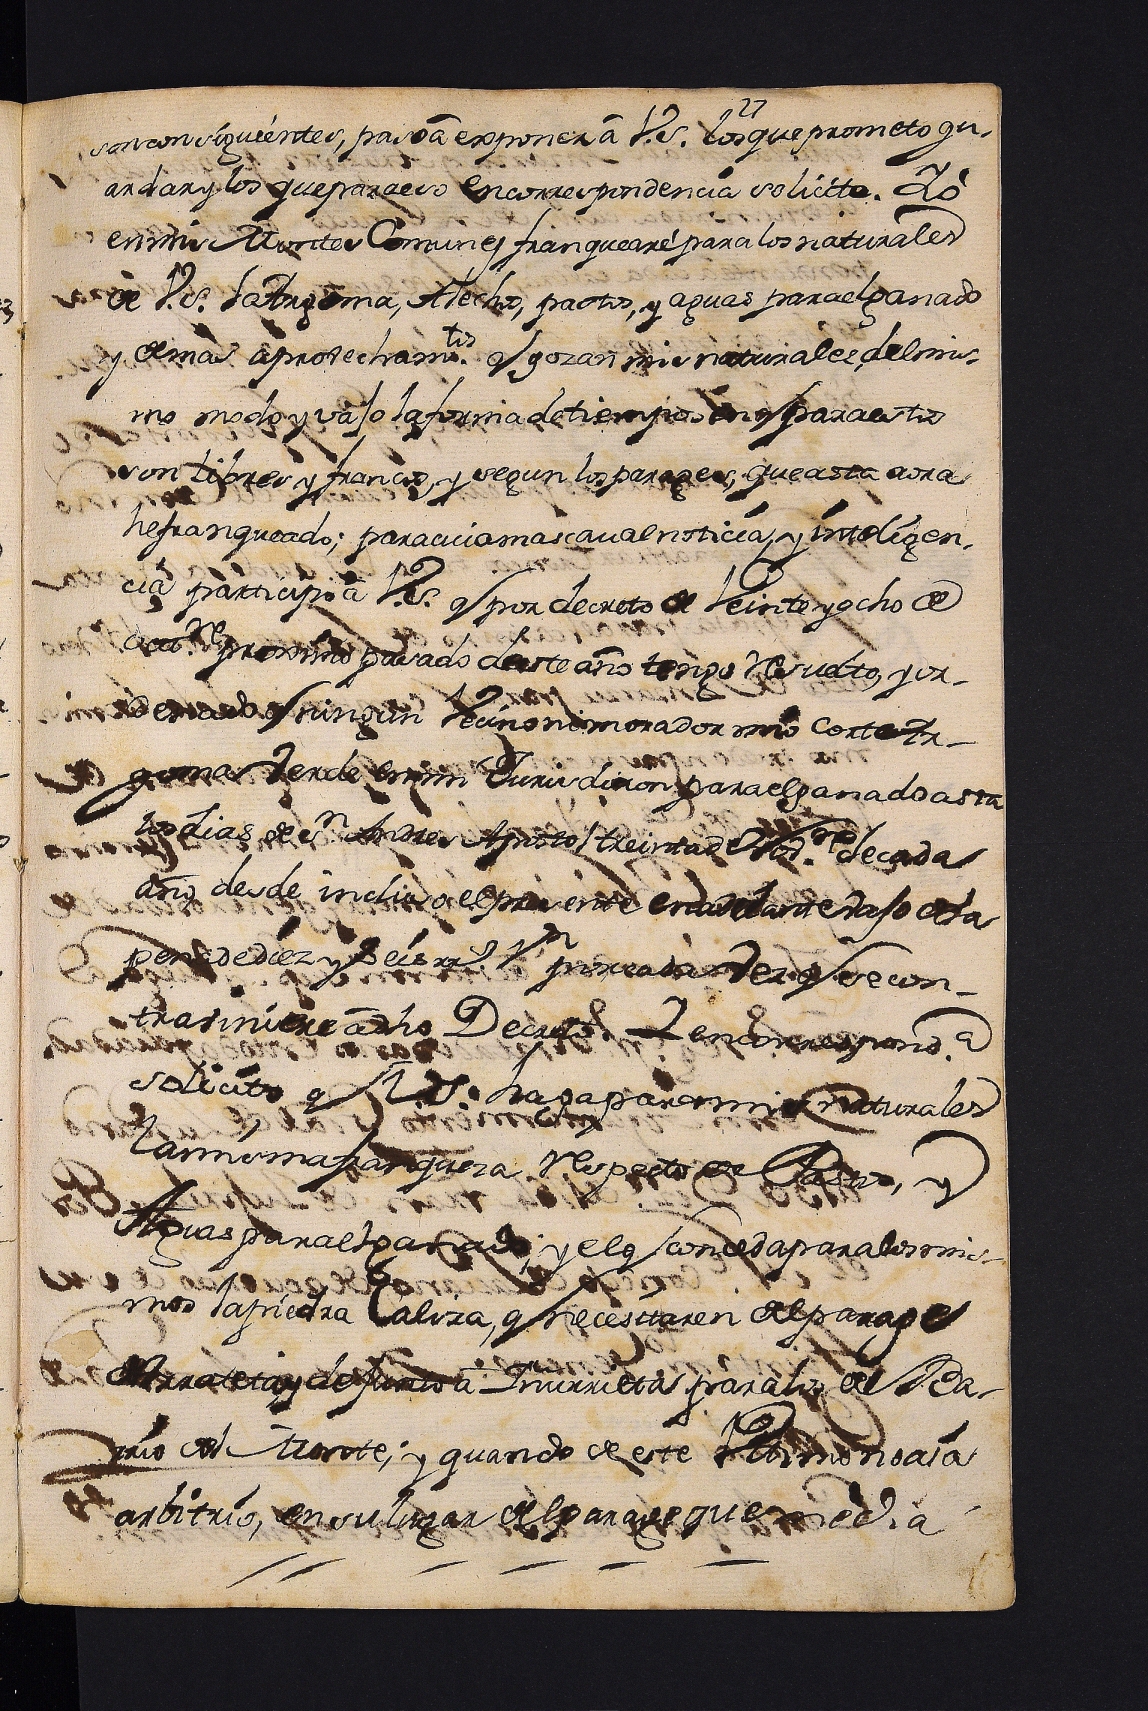 27
son consiguientes, paso â exponer â V.S. los que prometo gu-
ardar y los que para eso en correspondencia solicito. Yó
en mis Montes Comunes franquearé para los naturales
de V.S. la Argoma, Elecho, pastos, y aguas para el ganado
y demas aprovecham.tos q gozan mis naturales, del mis-
mo modo y vajo la forma de tiempos en q para estos
son libres y francos, y segun los parages, que asta aora
he franqueado; para cuia mas caval noticia, y inteligen-
cia participo â V.S. q por decreto de Veinte y ocho de
oct.re proximo pasado de este año tengo resuelto, y or-
denado q ningun Vecino ni morador mio corte Ar-
goma Verde en mi Jurisdicion para el ganado asta
los dias de Sn Andres Apostol treinta de Nov.re de cada
año, desde incluso el presente en adelante vajo de la
pena de diez y seis rrs Vn por cada Vez q se con-
traviniere a dho Decreto. Y en correspond.a
solicito q V.S. haga para mis naturales
la misma franqueza respecto de Pastos, y
Aguas para el ganado; y el q conceda para los mis-
mos la piedra Caliza, q necesitaren del parage
de Arrateta, y de junto â Inurrieta para los de
mio del Monte; y quando de este Ultimo no aia
arbitrio, en su lugar del parage que media